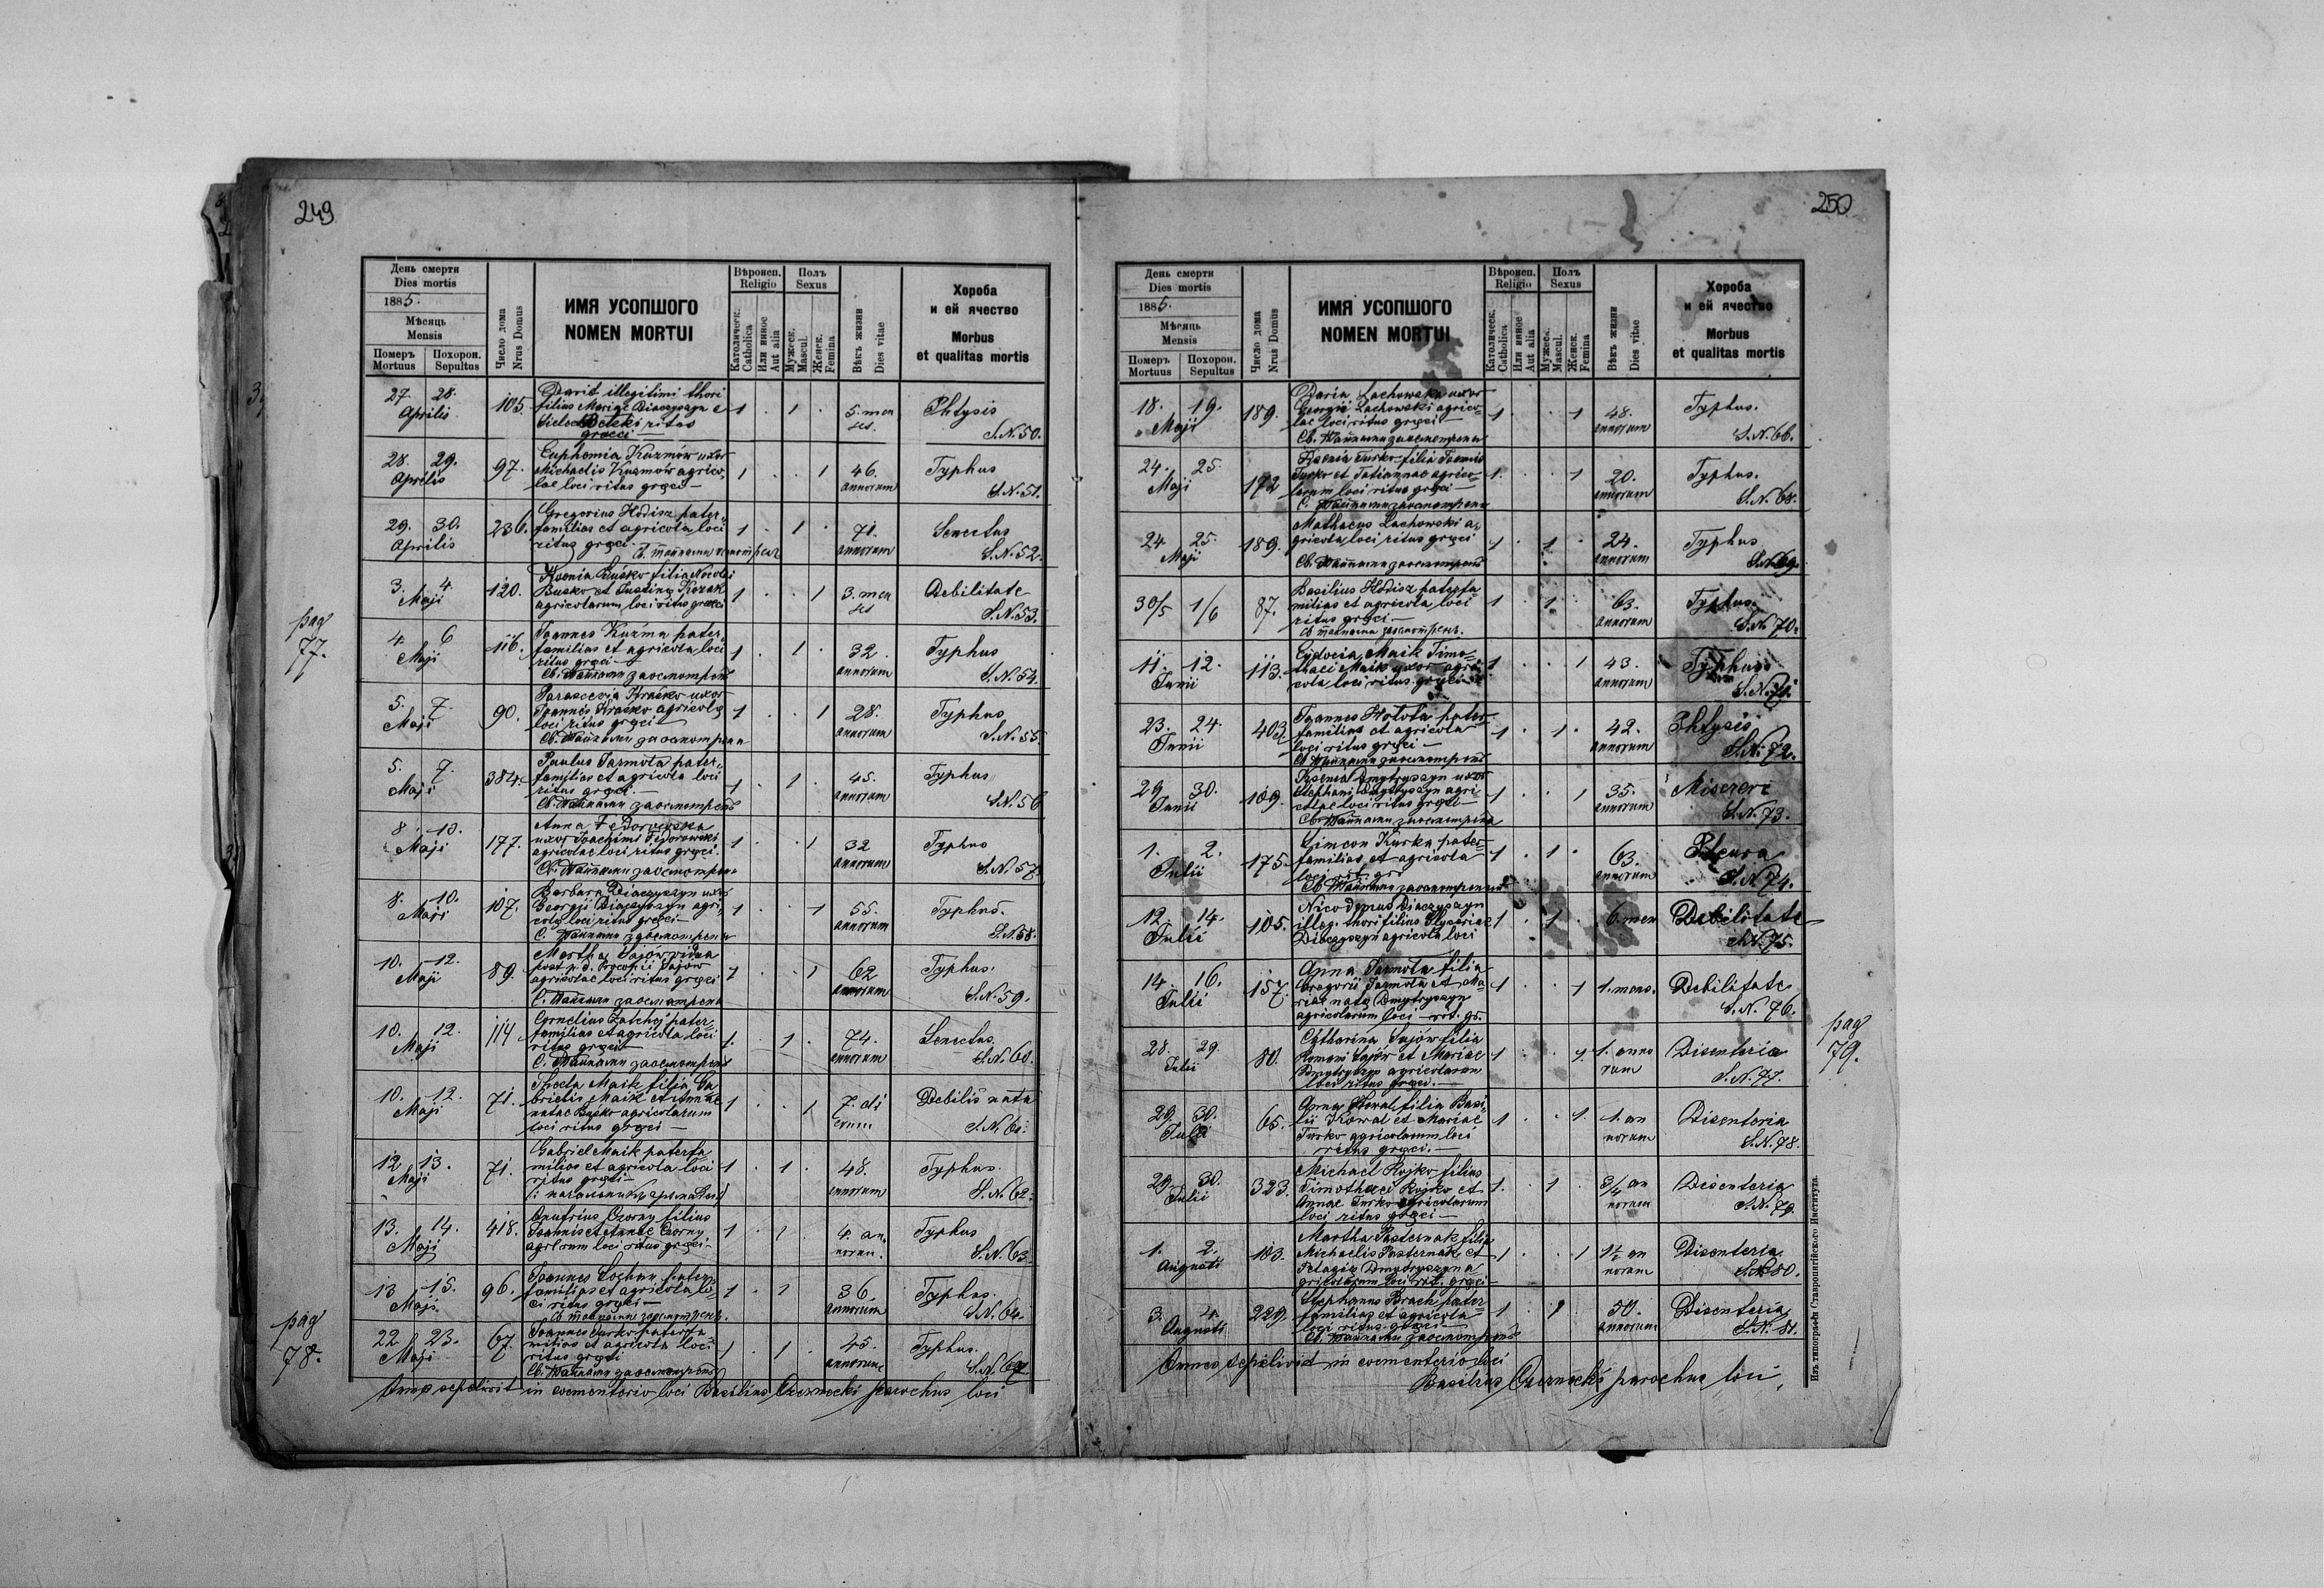 249
День смерти
Dies mortis
1885.
Мѣсяць
Mensis
Померъ Похорон.
Mortuus Sepultus
Число дома
Nrus Domus
ИМЯ УСОПШОГО
NOMEN MORTUI
Вѣроисп.
Religio
Католическ.
Catholica
Или инное
Aut alia
Полъ
Sexus
Мужеск.
Mascul.
Женск.
Femina
Вѣкъ жизни
Dies vitae
Хороба
и ей ячество
Morbus
et qualitas mortis
27. 28.
Aprilis
105.
illegitimi thori
filius Mariae Diaczyszyn e
ritus
graeci
1 . 1 .
5. men
ses.
Phtysis
S.N. 50.
28. 29.
Aprilis
97.
Euphemia Kuzmów uxor
Michaelis Kuzmów agrico-
lae loci ritus graeci
1 . . 1
46.
annorum
Typhus
S.N. 51.
29. 30.
Aprilis
236.
Gregorius Hodisz pater-
familias et agricola loci
ritus graeci
1 . 1 .
71.
annorum
Senectus
S.N. 52.
3. 4.
Maji
120.
Ksenia Buśko filia Nicolai
Busko et Justina Kozak
agricolarum loci ritus graeci
1 . . 1
3. men
ses
Debilitate
S.N. 53.
pag
77.
4. 6
Maji
116.
Joannes Kuźma pater-
familias et agricola loci
ritus graeci
Св. Тайнами заосмотренъ
1 . 1 .
32.
annorum
Typhus
S.N. 54.
5. 7.
Maji
90.
Parascevia Kraśko uxor
Joannis Kraśko agricolae
loci ritus graeci
Св. Тайнами заосмотрена
1 . . 1
28.
annorum
Typhus
S.N. 55.
5. 7.
Maji
384.
Paulus Jarmola pater-
familias et agricola loci
ritus graeci.
Св. Тайнами заосмотренъ
1 . 1 .
45.
annorum
Typhus
S.N. 56
8. 10.
Maji
177.
Anna Fedorowska
uxor Joachimi Fedorowski
agricolae loci ritus graeci.
Св. Тайнами заосмотрена
1 . . 1
32
annorum
Typhus
S.N. 57.
8. 10.
Maji
107.
Barbara Diaczyszyn uxor
Georgii Diaczyszyn agri-
colae loci ritus graeci
С. Тайнами заосмотрена
1 . . 1
55.
annorum
Typhus.
S.N. 58.
10. 12.
Maji
89.
Martha Sajów vidua
post p. d. Procopii Sajów
agricolae loci ritus graeci
С. Тайнами заосмотрена
1 . . 1
62
annorum
Typhus.
S.N. 59.
10. 12.
Maji
114
Cornelius pater-
familias et agricola loci
ritus graeci
С. Тайнами заосмотренъ
1. . 1 .
74.
annorum
Senectus.
S.N. 60.
10. 12.
Maji
71.
Thecla Maik filia Ga
brielis Maik et Annae
natae Busko agricolarum
loci ritus graeci
1 . . 1
7. di
erum
Debilis nata
S.N. 61.
12. 13.
Maji
71.
Gabriel Maik paterfa
milias et agricola loci
ritus graeci
1 . 1 .
48.
annorum
Typhus.
S.N. 62.
13. 14.
Maji
418.
Onufrius Czorny filius
Joannis et Annae Czorny
agrlrum loci ritus graeci
1 . 1 .
4. an
norum.
Typhus
S.N. 63.
13 15.
Maji
96.
Joannes pater-
familias et agricola lo-
ci ritus graeci
Св. Тайнами заосмотренъ.
1 . 1
36.
annorum
Typhus.
S.N. 64.
pag
78.
22 23.
Maji
67.
Joannes Turko paterfa
milias et agricola loci
ritus graeci
Св. Тайнами заосмотренъ
1 . 1 .
45.
annorum
Typhus.
S.N.
Omnes sepelivit in coementerio loci Basilius Czernecki parochus loci
250
День смерти
Dies mortis
1885.
Мѣсяць
Mensis
Померъ Похорон.
Mortuus Sepultus
Число дома
Nrus Domus
ИМЯ УСОПШОГО
NOMEN MORTUI
Вѣроисп.
Religio
Католическ.
Catholica
Или инное
Aut alia
Полъ
Sexus
Мужеск.
Mascul.
Женск.
Femina
Вѣкъ жизни
Dies vitae
Хороба
и ей ячество
Morbus
et qualitas mortis
18. 19.
Maji
189.
Daria Lachowska uxor
Georgii Lachowski agrico-
lae loci ritus graeci
Св. Тайнами заосмотрена
1 . . 1
48.
annorum
Typhus.
S.N. 66.
24. 25.
Maji
172
Ksenia Turko filia Joannis
Turko et Tatiannae agrico-
larum loci ritus graeci
С. Тайнами заосмотрена
1. . . 1
20.
annorum
Typhus.
S.N. 68.
24. 25.
Maji
189.
Mathaeus Lachowski a-
gricola loci ritus graeci
Св. Тайнами заосмотренъ
1 . 1 .
24.
annorum
Typhus
S.N. 69.
30/5 1/6
87.
Basilius Hodisz paterfa
milias et agricola loci
ritus graeci
Св Тайнами заосмотренъ.
1 . 1 .
63.
annorum
Typhus.
S.N. 70.
11. 12.
Junii
113.
Eudocia Maik Timo-
thaei Maik uxor agri-
cola loci ritus graeci
1 . . 1
43.
annorum
Typhus.
S.N. 71.
23. 24.
Junii
403.
Joannes Holota pater-
familias et agricola
loci ritus graeci
Св Тайнами заосмотренъ
1 . 1 .
42.
annorum
Phtysis
S.N. 72.
29 30.
Junii
109.
Ksenia Dmytryszyn uxor
Stephani Dmytryszyn agri-
colae loci ritus graeci
Св. Тайнами заосмотрена
1 . . 1
35.
annorum
Misereri
S.N. 73.
1. 2.
Julii
175.
Simeon Kurka pater-
familias et agricola
loci rit. gr.
Св Тайнами заосмотренъ
1 . 1 .
63.
annorum
Pleura
S.N 74.
12. 14.
Julii
105.
Nicodemus Diaczyszyn
illeg. thori filius Glyceriae
Diaczyszyn agricola loci
1 . 1 .
6. men
Debilitate
S.N. 75.
14. 16.
Julii
157.
Anna Jarmola filia
Gregorii Jarmola et Ma-
riae nata Dmytryszyn
agricolarum loci rit. gr.
1 . . 1
1. mens.
Debilitate
S.N. 76.
pag
79.
28. 29.
Julii
80.
Catharina Sajów filia
Romani Sajów et Mariae
Dmytryszyn agricolarum
loci ritus graeci.
1 . . 1
1. anno
rum
Disenteria
S.N. 77.
29 30.
Julii
65.
Anna Kowal filia Basi-
lii Kowal et Mariae
Turko agricolarum loci
ritus graeci.
1 . . 1.
1. an
norum
Disenteria
S.N. 78.
29. 30.
Julii
323.
Michael Kojko filius
Timothaei Kojko et
Annae Turko agricolarum
loci ritus graeci
1. . 1 .
3/4 an
norum
Disenteria
S.N. 79.
1. 2.
Augusti
103.
Martha Pasternak filia
Michaelis Pasternak et
Pelagia Dmytryszyn a-
gricolarum loci rit. graeci
1 . . 1
1½ an
norum
Disenteria.
S.N. 80.
3. 4.
Augusti
229.
Stephanus Brach pater-
familias et agricola
loci ritus graeci
Св. Тайнами заосмотренъ
1 . 1
50.
annorum
Disenteria
S.N. 81.
Omnes sepelivit in coementerio loci
Basilius Czernecki parochus loci.
Изъ типографіи Ставропигійского Института.